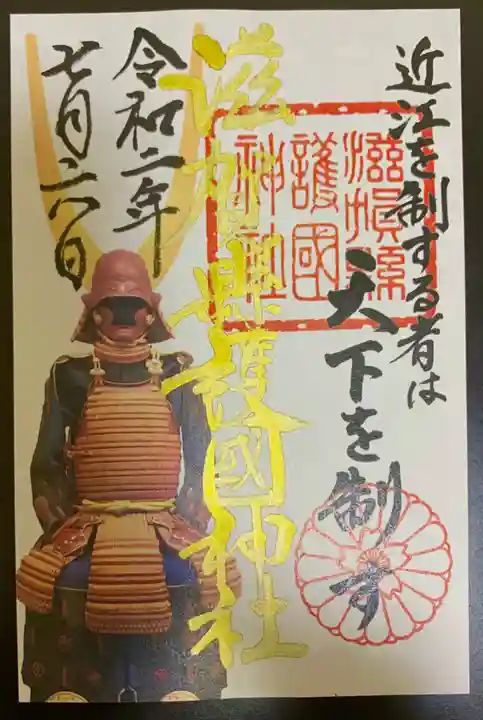 近江を制する者は
天下を制す
滋賀縣
護國
神社
滋賀縣護國神社
令和二年
七月二八日